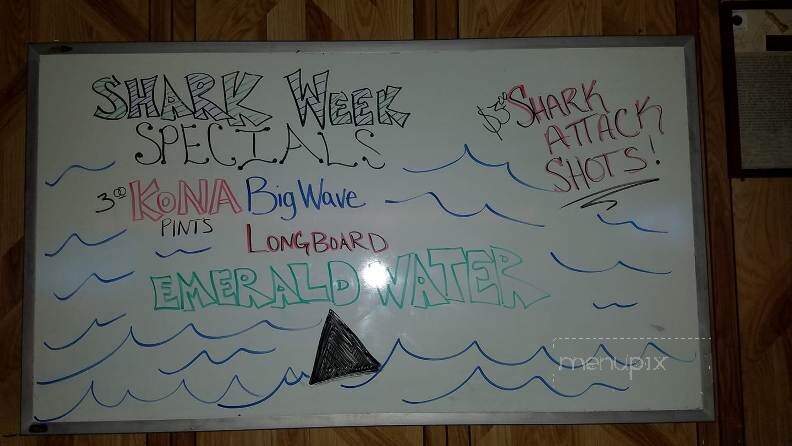 SHARK WEEK
SPECIALS
$5⁰⁰ SHARK
ATTACK
SHOTS!
3⁰⁰ KONA Big Wave
PINTS
LONGBOARD
EMERALD WATER
menupix